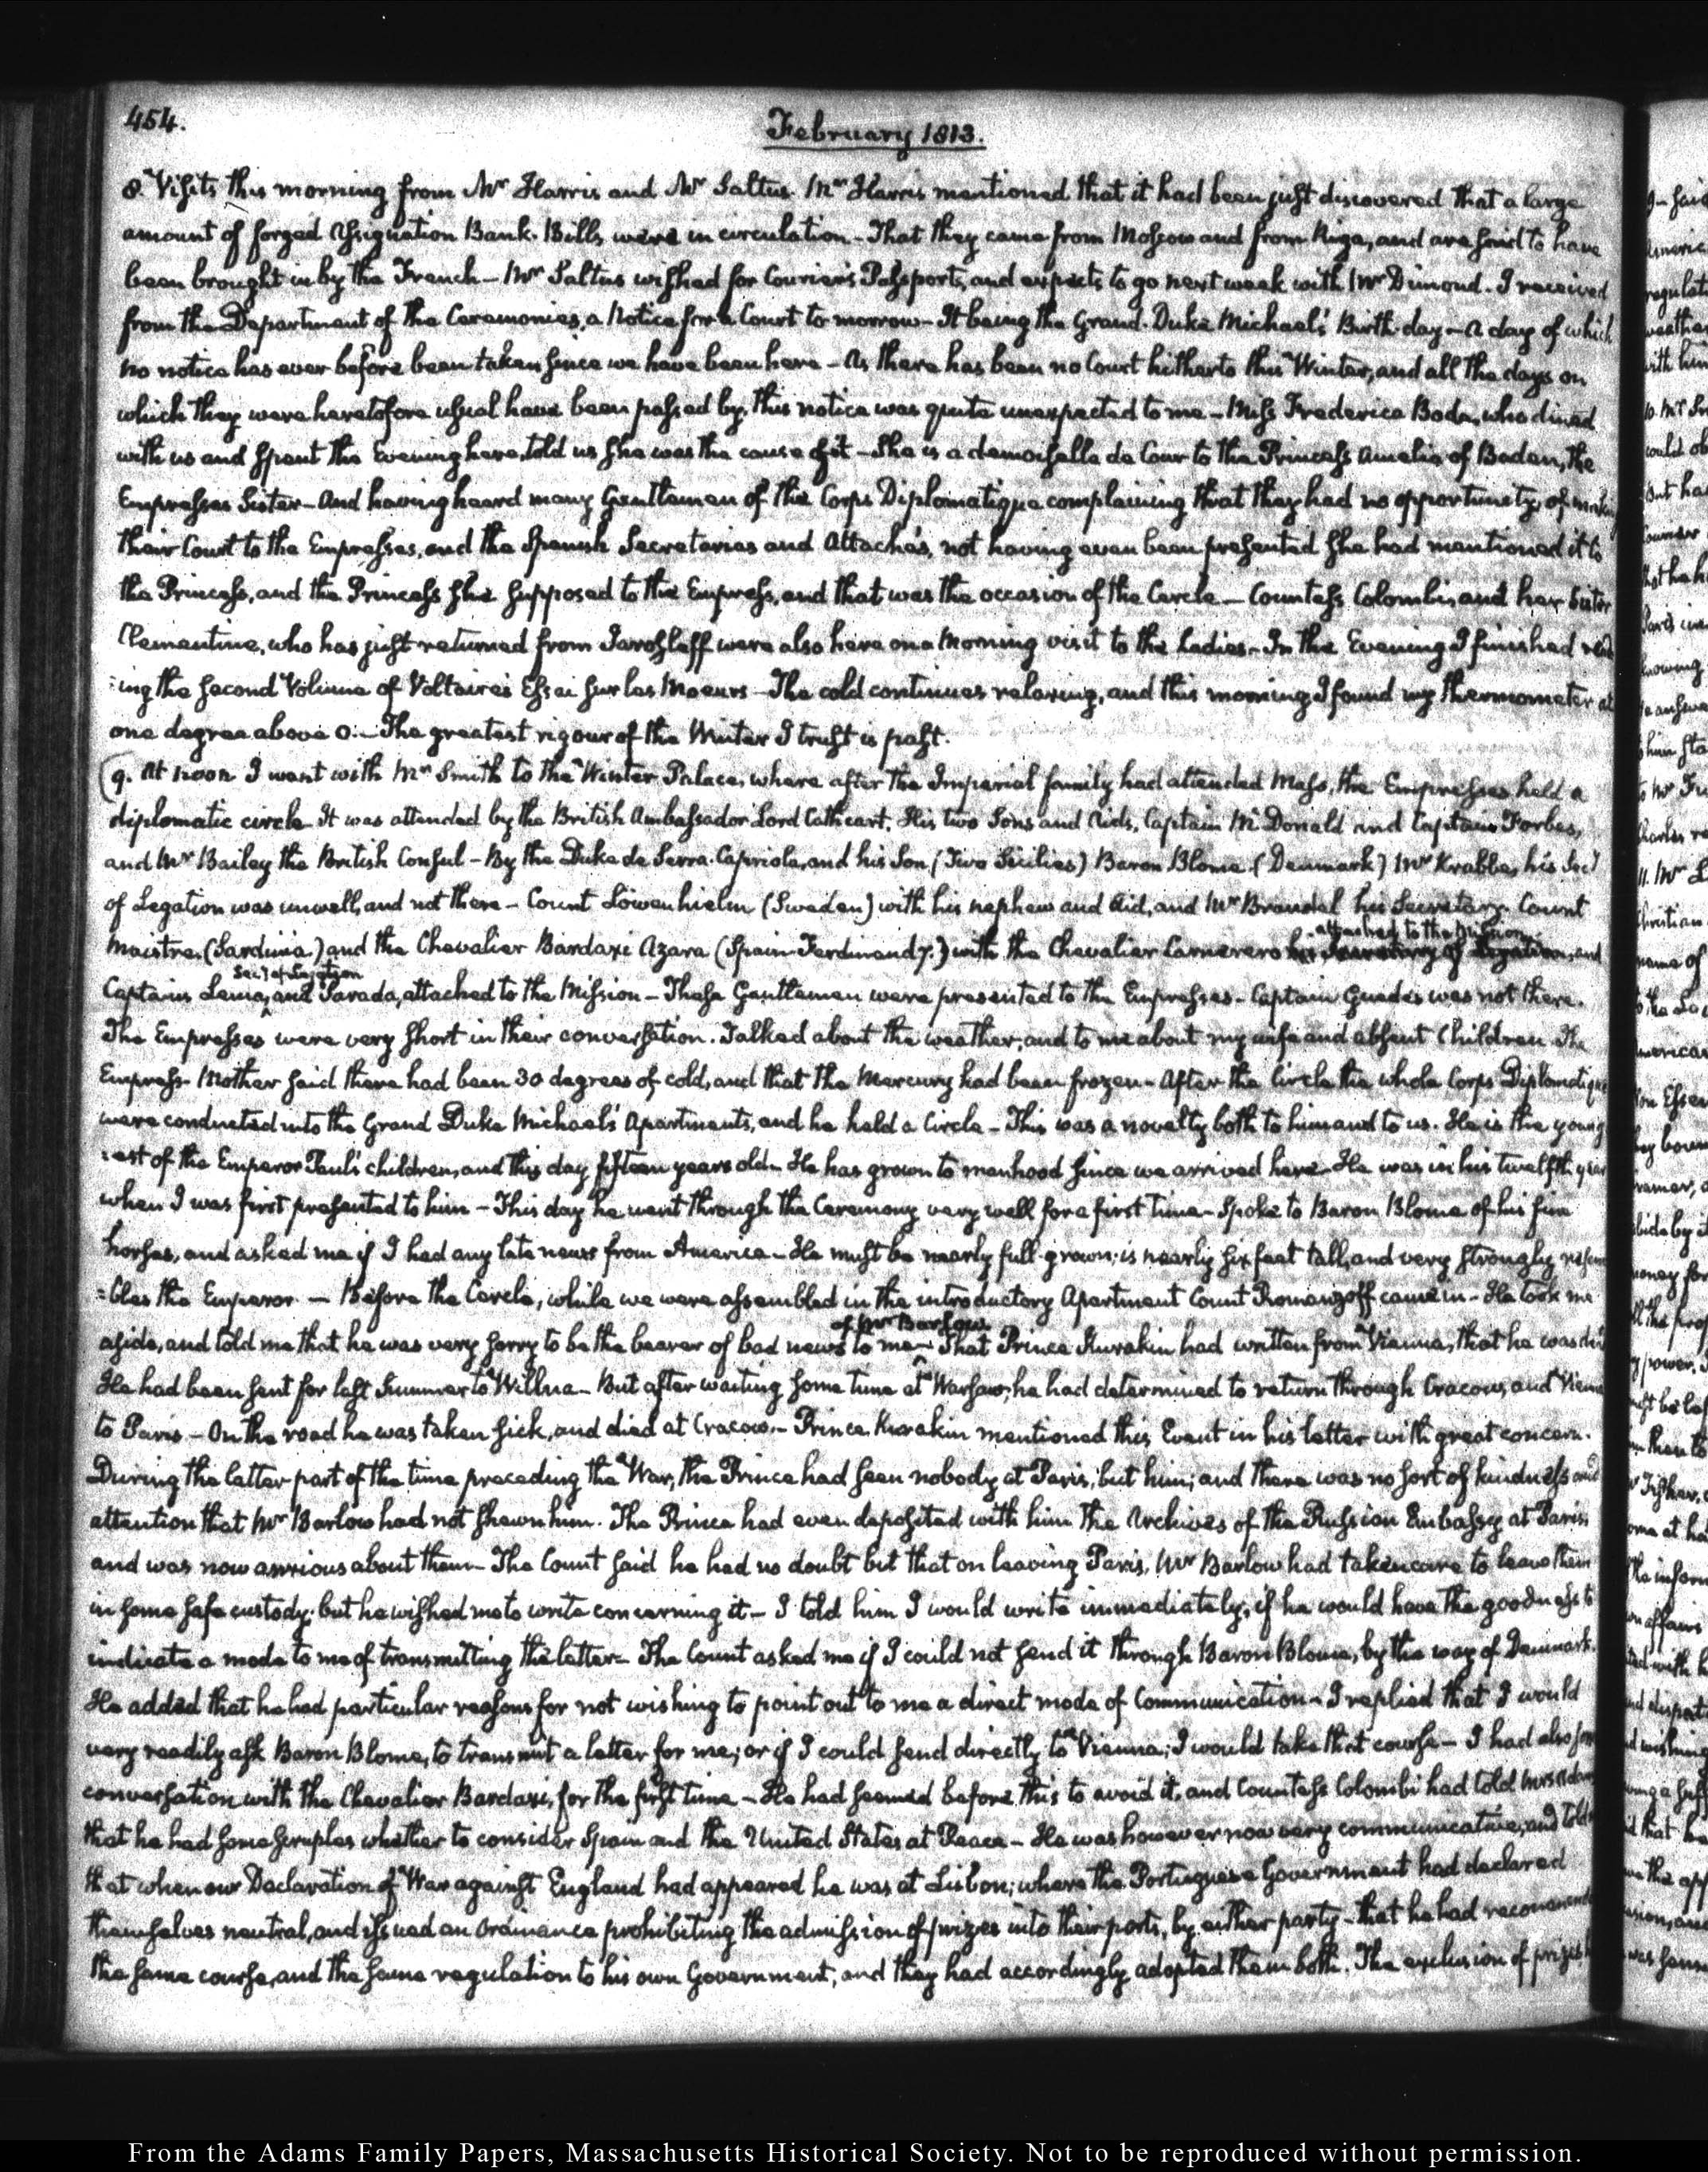 454.
February 1813.
8. Visits this morning from Mr Harris and Mr Saltus. Mr Harris mentioned that it had been just discovered that a large
amount of forged Assignation Bank-Bills were in circulation — That they came from Moscow and from Riga, and are said to have
been brought in by the French — Mr Saltus wished for Courier's Passports, and expects to go next week with Mr Dimond. I received
from the Department of the Ceremonies, a Notice for a Court to morrow — It being the Grand-Duke Michael's Birth-day — A day of which
no notice has ever before been taken since we have been here — As there has been no Court hitherto this Winter, and all the days on
which they were heretofore usual have been passed by, this notice was quite unexpected to me — Miss Frederica Bode, who dined
with us and spent the Evening here, told us she was the cause of it — She is a demoiselle de Cour to the Princess Amelia of Baden, the
Empresses Sister — And having heard many Gentlemen of the Corps Diplomatique complaining that they had no opportunity of making
their Court to the Empresses, and the Spanish Secretaries and Attachés, not having even been presented she had mentioned it to
the Princess, and the Princess she supposed to the Empress, and that was the occasion of the Circle — Countess Colombi, and her Sister
Clementine, who has just returned from Jaroslaff were also here on a Morning visit to the Ladies — In the Evening I finished read-
:ing the second Volume of Voltaire's Essai sur les Moeurs — The cold continues relaxing, and this morning I found my thermometer at
one degree above 0. — The greatest rigour of the Winter I trust is past.
9. At noon I went with Mr Smith to the Winter Palace, where after the Imperial family had attended Mass, the Empresses held a
diplomatic circle. It was attended by the British Ambassador Lord Cathcart, His two Sons and Aids, Captain McDonald and Captain Forbes,
and Mr Bailey the British Consul — By the Duke de Serra-Capriola, and his Son (Two Sicilies) Baron Blome (Denmark) Mr Krabbe, his Secy
of Legation was unwell, and not there — Count Löwenhielm (Sweden) with his nephew and Aid, and Mr Brandel his Secretary. Count
attached to the Mission
Maistre (Sardinia) and the Chevalier Bardaxi Azara (Spain-Ferdinand 7.) with the Chevalier Carnerero his Secretary of Legation, and
Secy of Legation
Captain Lema, and Parada, attached to the Mission — These Gentlemen were presented to the Empresses. Captain Guedes was not there.
The Empresses were very short in their conversation. Talked about the weather; and to me about my wife and absent Children. The
Empress-Mother said there had been 30 degrees of cold, and that the Mercury had been frozen — After the Circle the whole Corps Diplomatique
were conducted into the Grand Duke Michael's Apartments, and he held a Circle — This was a novelty both to him and to us. He is the young-
:est of the Emperor Paul's children, and this day fifteen years old — He has grown to manhood since we arrived here. He was in his twelfth year
when I was first presented to him — This day he went through the Ceremony very well for a first time — Spoke to Baron Blome of his fine
horses, and asked me if I had any late news from America — He must be nearly full-grown; is nearly six feet tall, and very strongly resem-
:bles the Emperor. — Before the Circle, while we were assembled in the introductory Apartment Count Romanzoff came in — He took me
of Mr Barlow.
aside, and told me that he was very sorry to be the bearer of bad news to me — That Prince Kurakin had written from Vienna, that he was dead
He had been sent for last Summer to Willna — But after waiting some time at Warsaw, he had determined to return through Cracow, and Vienna
to Paris — On the road he was taken sick, and died at Cracow — Prince Kurakin mentioned this Event in his letter with great concern.
During the latter part of the time preceding the War, the Prince had seen nobody at Paris, but him; and there was no sort of kindness and
attention that Mr Barlow had not shewn him. The Prince had even deposited with him the Archives of the Russian Embassy at Paris,
and was now anxious about them — The Count said he had no doubt but that on leaving Paris, Mr Barlow had taken care to leave them
in some safe custody; but he wished me to write concerning it — I told him I would write immediately, if he would have the goodness to
indicate a mode to me of transmitting the letter — The Count asked me if I could not send it through Baron Blome, by the way of Denmark.
He added that he had particular reasons for not wishing to point out to me a direct mode of Communication — I replied that I would
very readily ask Baron Blome, to transmit a letter for me; or if I could send directly to Vienna; I would take that course — I had also some
conversation with the Chevalier Bardaxi, for the first time — He had seemed before this to avoid it, and Countess Colombi had told Mrs Adams
that he had some scruples whether to consider Spain and the United States at Peace — He was however now very communicative, and told
that when our Declaration of War against England had appeared he was at Lisbon; where the Portuguese Government had declared
themselves neutral, and issued an Ordinance prohibiting the admission of prizes into their ports, by either party — that he had recommended
the same course, and the same regulation to his own Government, and they had accordingly adopted them both. The exclusion of prizes
From the Adams Family Papers, Massachusetts Historical Society. Not to be reproduced without permission.